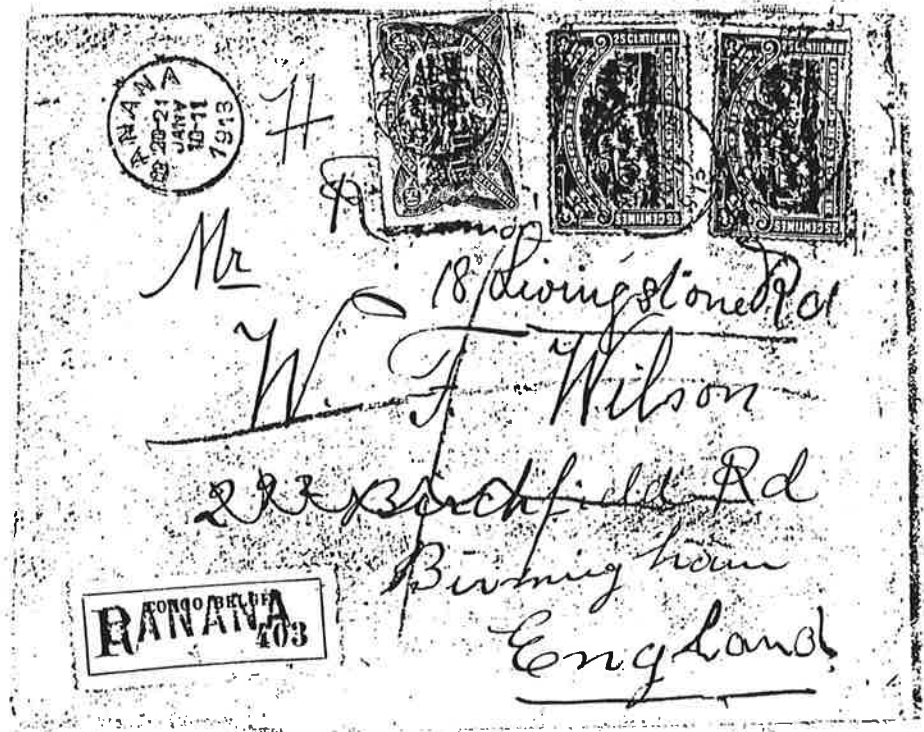 BANANA
20-21
JANV
10-11
1913
25 CENTIEMEN
25 CENTIEMEN
25 CENTIMES
25 CENTIMES
Mr
18 Livingstone Rd
W. F. Wilson
Birchfield Rd
Birmingham
England
CONGO BELGE
BANANA
403